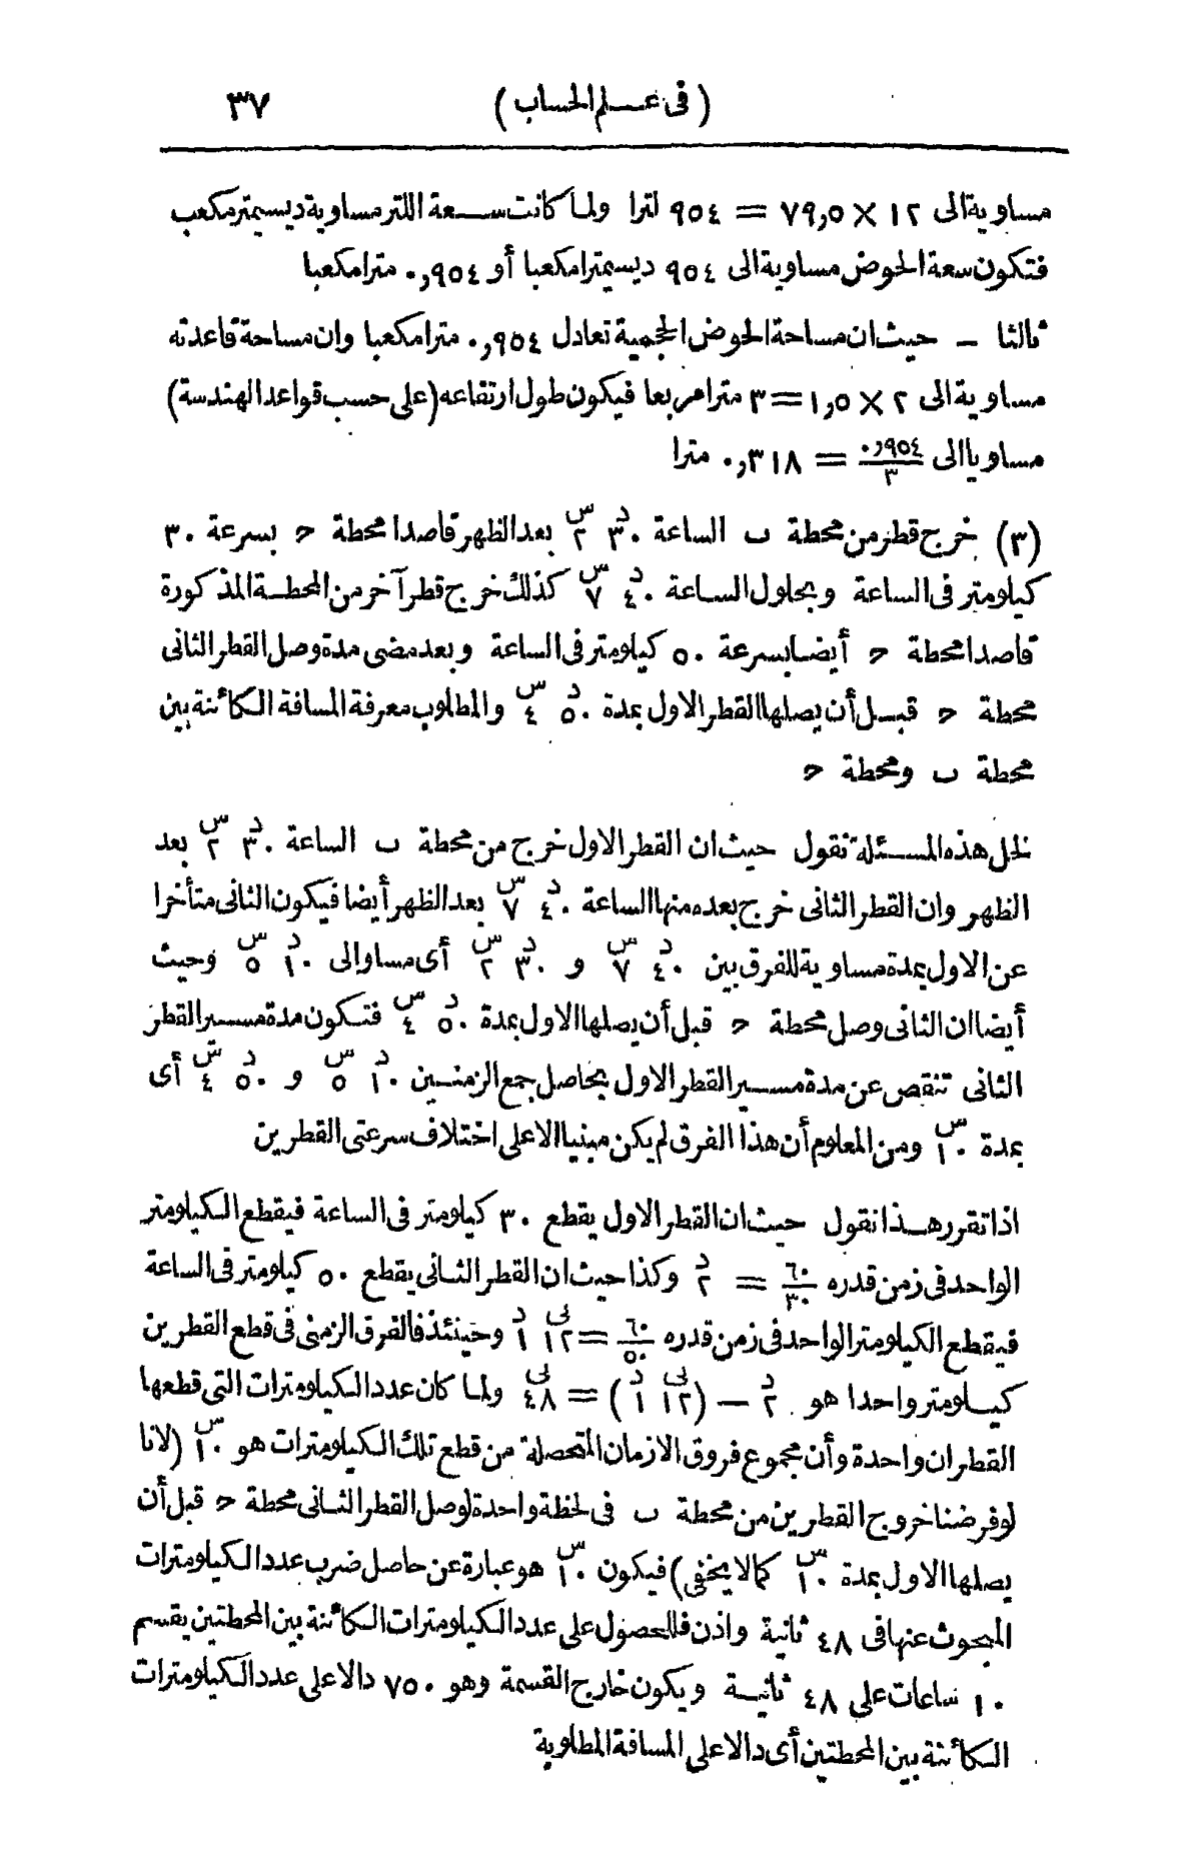 (فى علم الحساب) ٣٧
مساوية الى ١٢ × ٧٩,٥ = ٩٥٤ لترا ولما كانت سعة اللتر مساوية ديسيمتر مكعب
فتكون سعة الحوض مساوية الى ٩٥٤ ديسيمترا مكعبا أو ٠,٩٥٤ مترا مكعبا
ثالثا – حيث ان مساحة الحوض الحجمية تعادل ٠,٩٥٤ مترا مكعبا وان مساحة قاعدته
مساوية الى ٢ × ١,٥ = ٣ مترا مربعا فيكون طول ارتفاعه (على حسب قواعد الهندسة)
مساويا الى ٠,٩٥٤/٣ = ٠,٣١٨ مترا
(٣) خرج قطر من محطة ب الساعة ٣٠د ٢س بعد الظهر قاصدا محطة ح بسرعة ٣٠
كيلومتر فى الساعة وبحلول الساعة ٤٠د ٧س كذلك خرج قطر آخر من المحطة المذكورة
قاصدا محطة ح أيضا بسرعة ٥٠ كيلومتر فى الساعة وبعد مضى مدة وصل القطر الثانى
محطة ح قبل أن يصلها القطر الاول بمدة ٥٠د ٤س والمطلوب معرفة المسافة الكائنة بين
محطة ب ومحطة ح
لحل هذه المسئلة نقول حيث ان القطر الاول خرج من محطة ب الساعة ٣٠د ٢س بعد
الظهر وان القطر الثانى خرج بعده منها الساعة ٤٠د ٧س بعد الظهر أيضا فيكون الثانى متأخرا
عن الاول بمدة مساوية للفرق بين ٤٠د ٧س و ٣٠د ٢س أى مساو الى ١٠د ٥س وحيث
أيضا ان الثانى وصل محطة ح قبل أن يصلها الاول بمدة ٥٠د ٤س فتكون مدة مسير القطر
الثانى تنقص عن مدة مسير القطر الاول بحاصل جمع الزمنين ١٠د ٥س و ٥٠د ٤س أى
بمدة ١٠س ومن المعلوم أن هذا الفرق لم يكن مبنيا الا على اختلاف سرعتى القطرين
اذا تقرر هذا نقول حيث ان القطر الاول يقطع ٣٠ كيلومتر فى الساعة فيقطع الكيلومتر
الواحد فى زمن قدره ٦٠/٣٠ = ٢د وكذا حيث ان القطر الثانى يقطع ٥٠ كيلومتر فى الساعة
فيقطع الكيلومتر الواحد فى زمن قدره ٦٠/٥٠ = ١٢نى ١د وحينئذ فالفرق الزمنى فى قطع القطرين
كيلومتر واحدا هو ٢د – (١٢نى ١د) = ٤٨نى ولما كان عدد الكيلومترات التى قطعها
القطران واحدة وأن مجموع فروق الازمان المتحصلة من قطع تلك الكيلومترات هو ١٠س (لانا
لو فرضنا خروج القطرين من محطة ب فى لحظة واحدة لوصل القطر الثانى محطة ح قبل أن
يصلها الاول بمدة ١٠س كما لا يخفى) فيكون ١٠س هو عبارة عن حاصل ضرب عدد الكيلومترات
المبحوث عنها فى ٤٨ ثانية واذن فللحصول على عدد الكيلومترات الكائنة بين المحطتين يقسم
١٠ ساعات على ٤٨ ثانية ويكون خارج القسمة وهو ٧٥٠ دالا على عدد الكيلومترات
الكائنة بين المحطتين أى دالا على المسافة المطلوبة